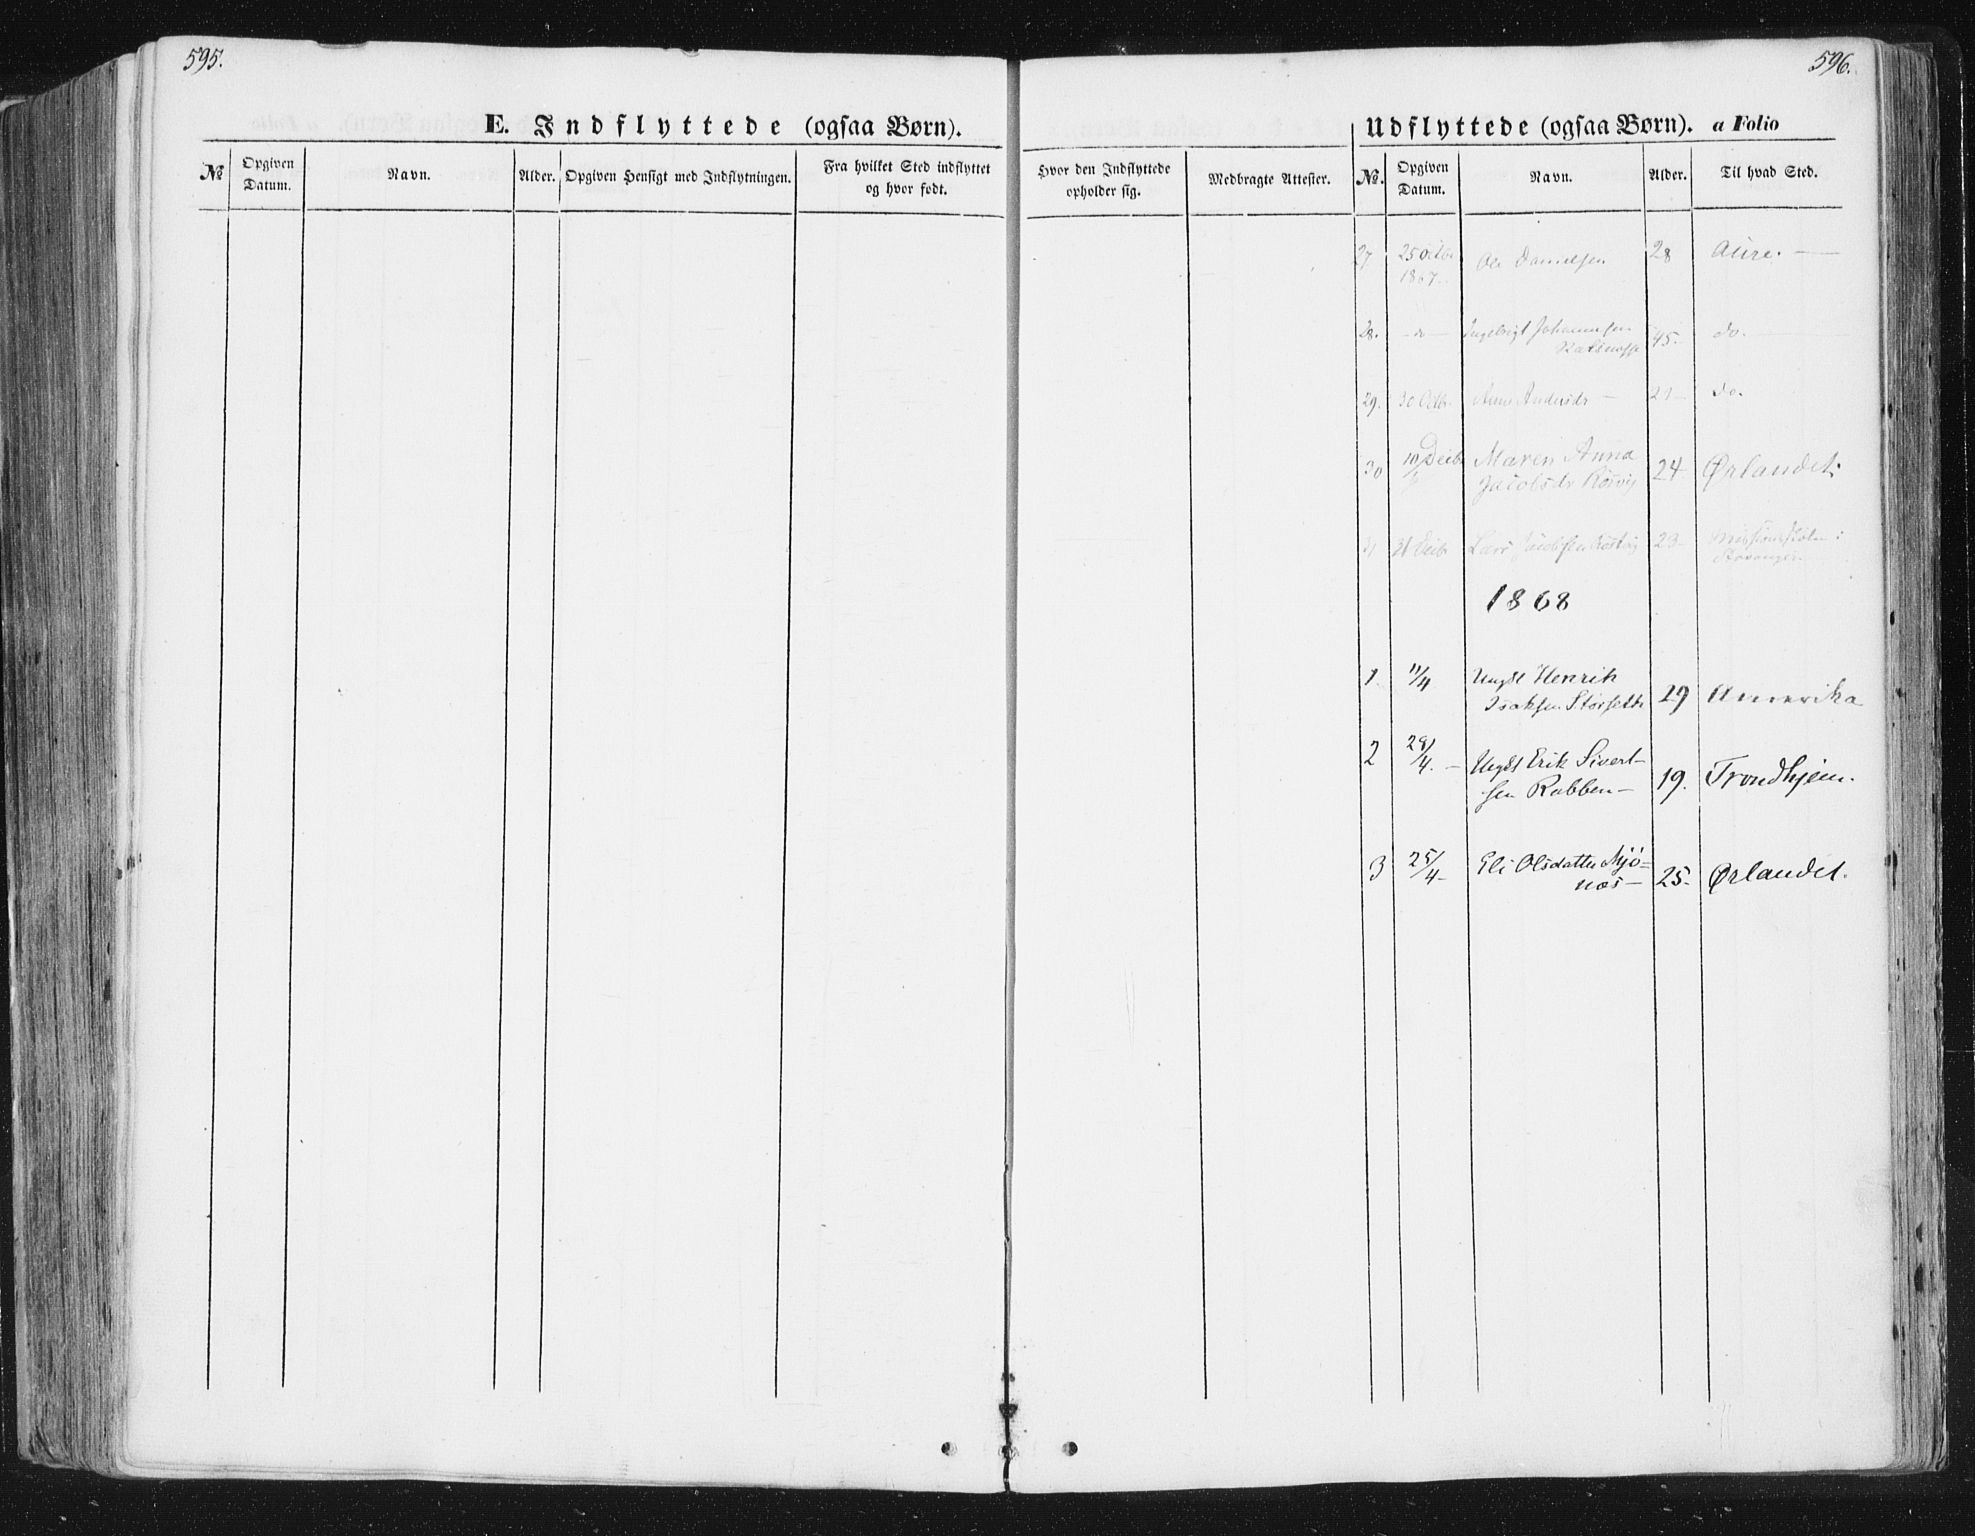 595.
E. Indflyttede (ogsaa Børn).
№ Opgiven Datum. Navn. Alder. Opgiven Hensigt med Indflytningen. Fra hvilket Sted indflyttet og hvor født.
596.
Udflyttede (ogsaa Børn). a Folio
Hvor den Indflyttede opholder sig. Medbragte Attester. №. Opgiven Datum. Navn. Alder. Til hvad Sted.
27 25 Octbr 1867 Ole Danielsen 28 Aure.
28. do Ingebrigt Johannesen 45 do.
29. 30 Octb. Anne Andersdr 21 do.
30 10 Decbr Maren Anna
Jacobsdr 24 Ørlandet.
31 31 Decbr Lars Jacobsen 23 Missionsskolen i
Stavanger
1868
1. 11/4 Ungk Henrik
Isaksen Størseth 19 Amerika
2 28/4. Ungk Erik Sivert-
sen Rabben 19. Trondhjem.
3 25/4 Eli Olsdatter Mjø=
næs 25. Ørlandet.